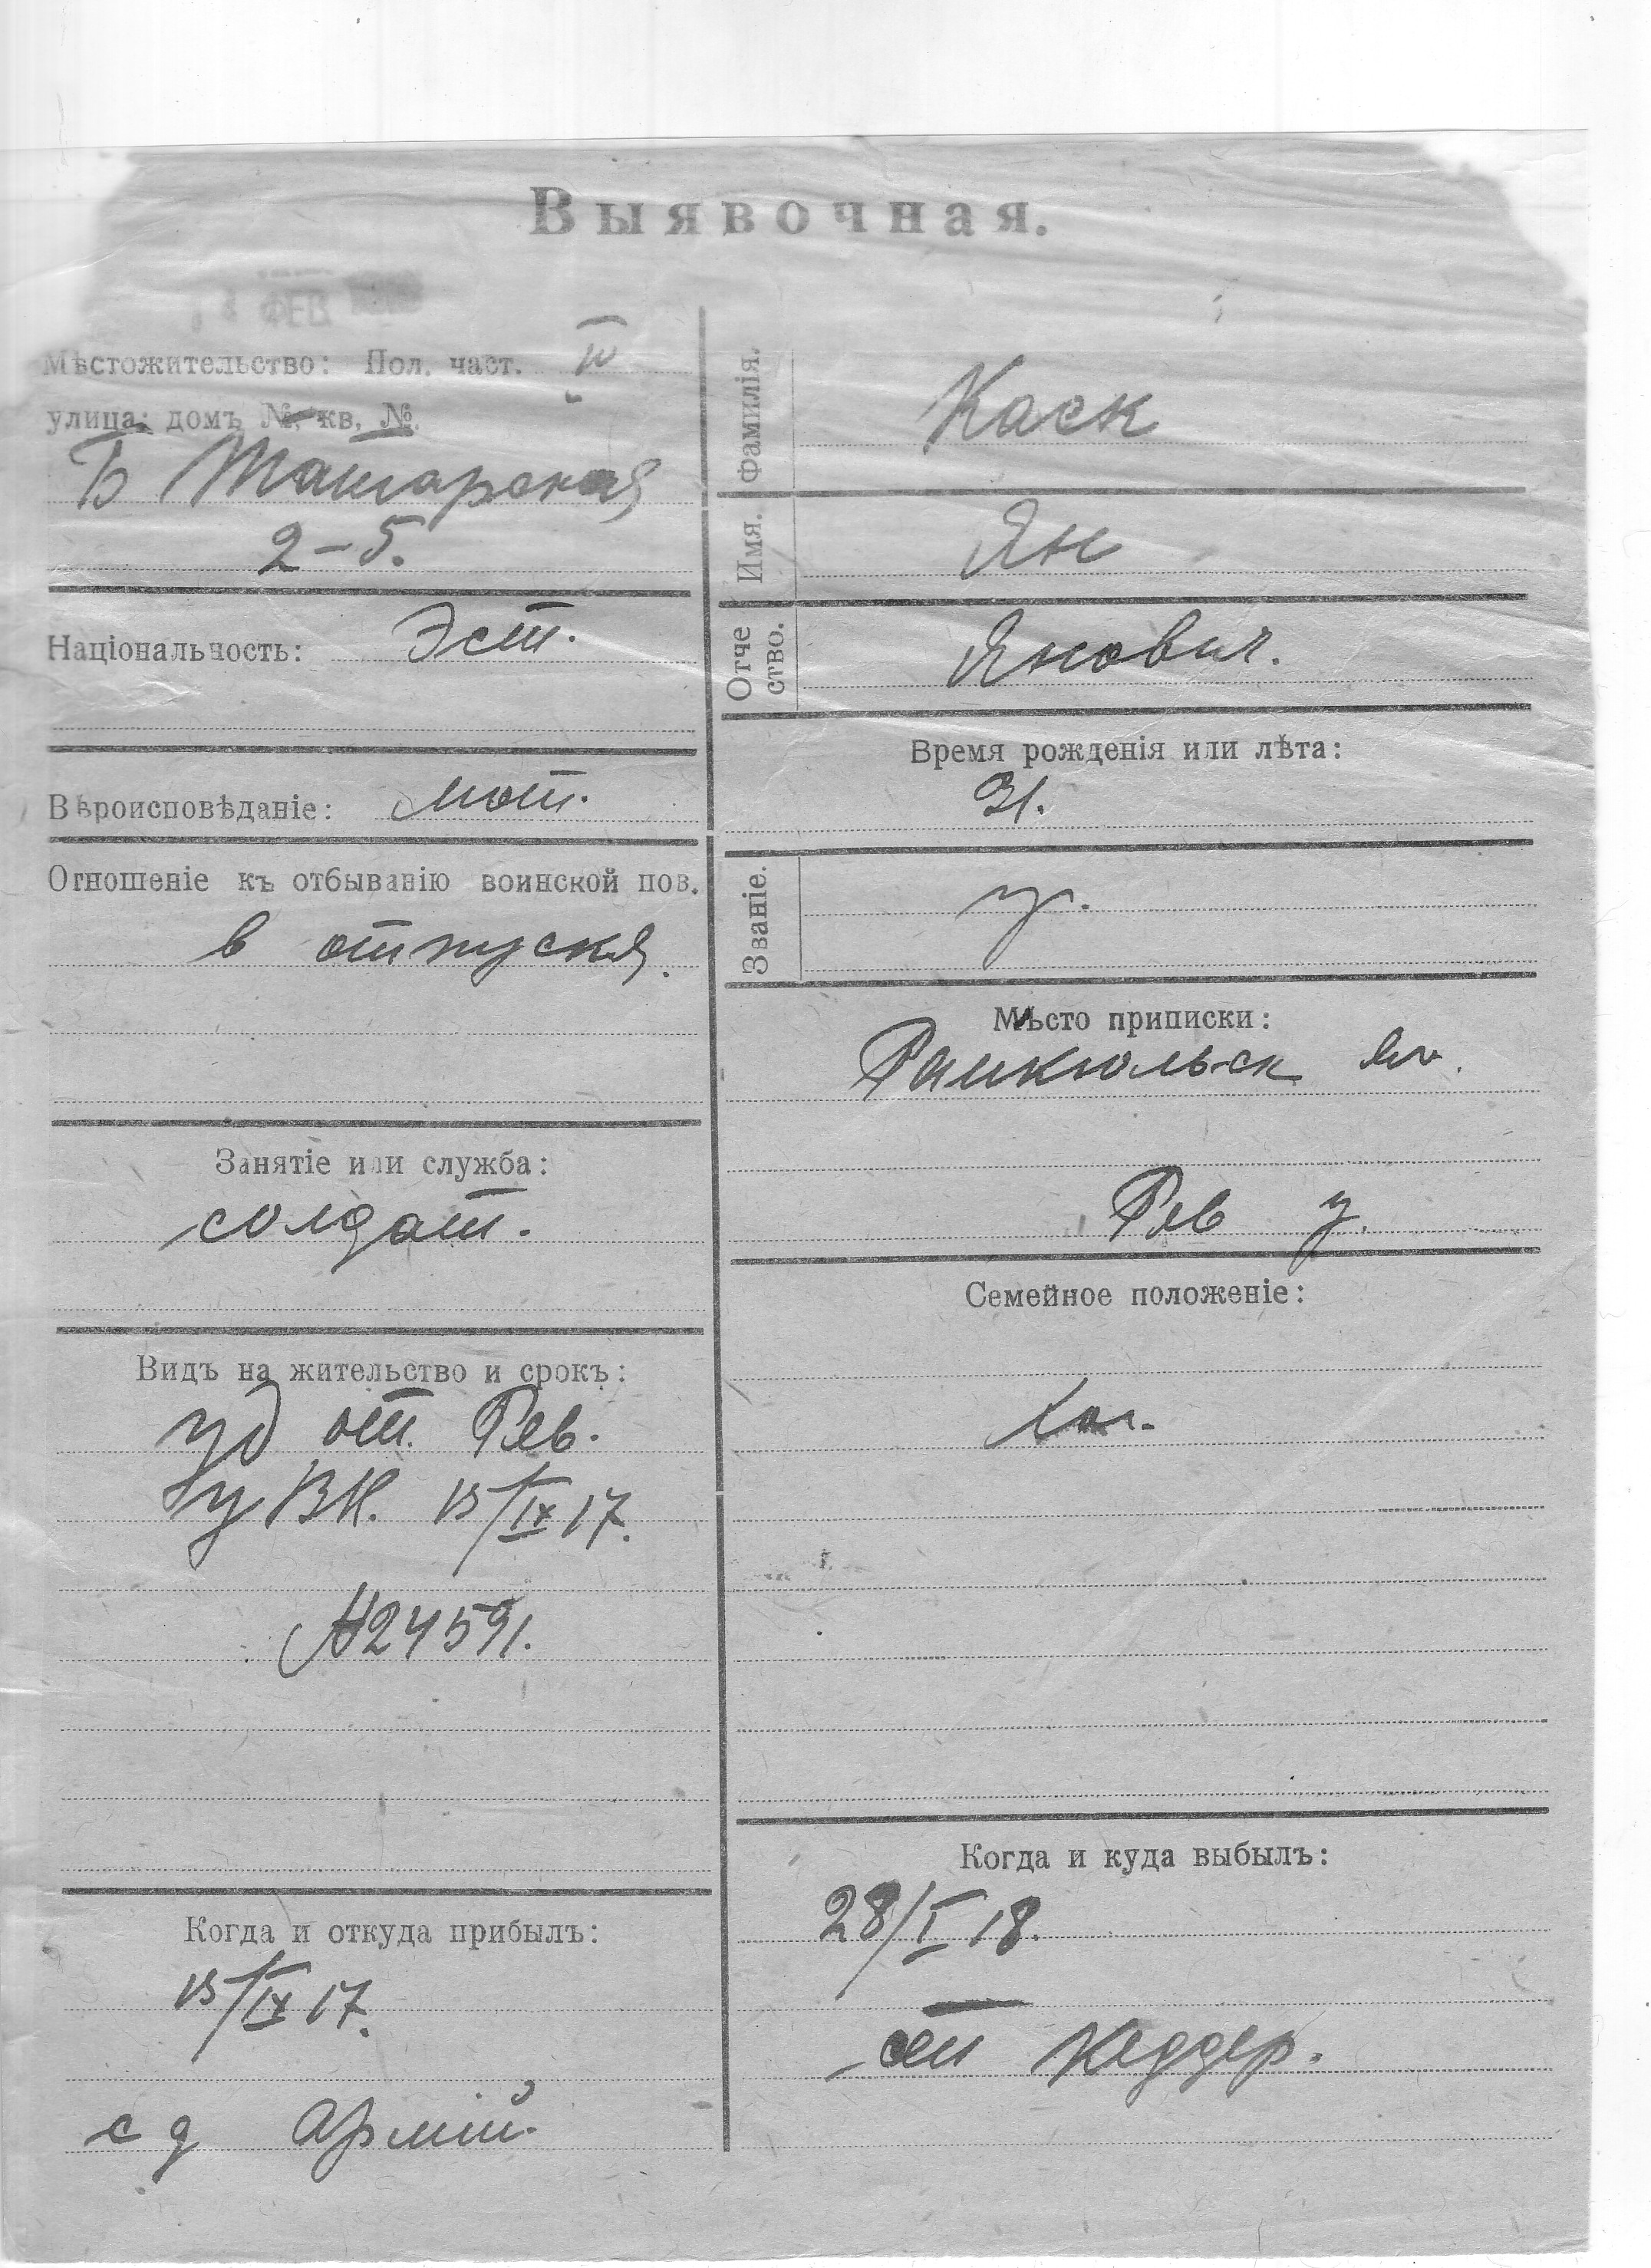 Выявочная.
ФЕВ
Мѣстожительство: Пол. част. IV
улица; домъ №, кв, №.
Б Татарская
2-5.
Національность: Эст.
Вѣроисповѣданіе: лют.
Отношеніе къ отбыванію воинской пов.
в отпуску.
Занятіе или служба:
солдат.
Видъ на жительство и срокъ:
уд от. Рев.
у ВН. 15/IX 17.
№24591.
Когда и откуда прибылъ:
15/IX 17.
с д Армій.
Фамилія. Каск
Имя. Ян
Отче ство. Янович.
Время рожденія или лѣта:
31.
Званіе. кр.
Мѣсто приписки:
Раикюльск вол.
Рев у.
Семейное положеніе:
Хол.
Когда и куда выбылъ:
28/I 18.
ст Кеддер.